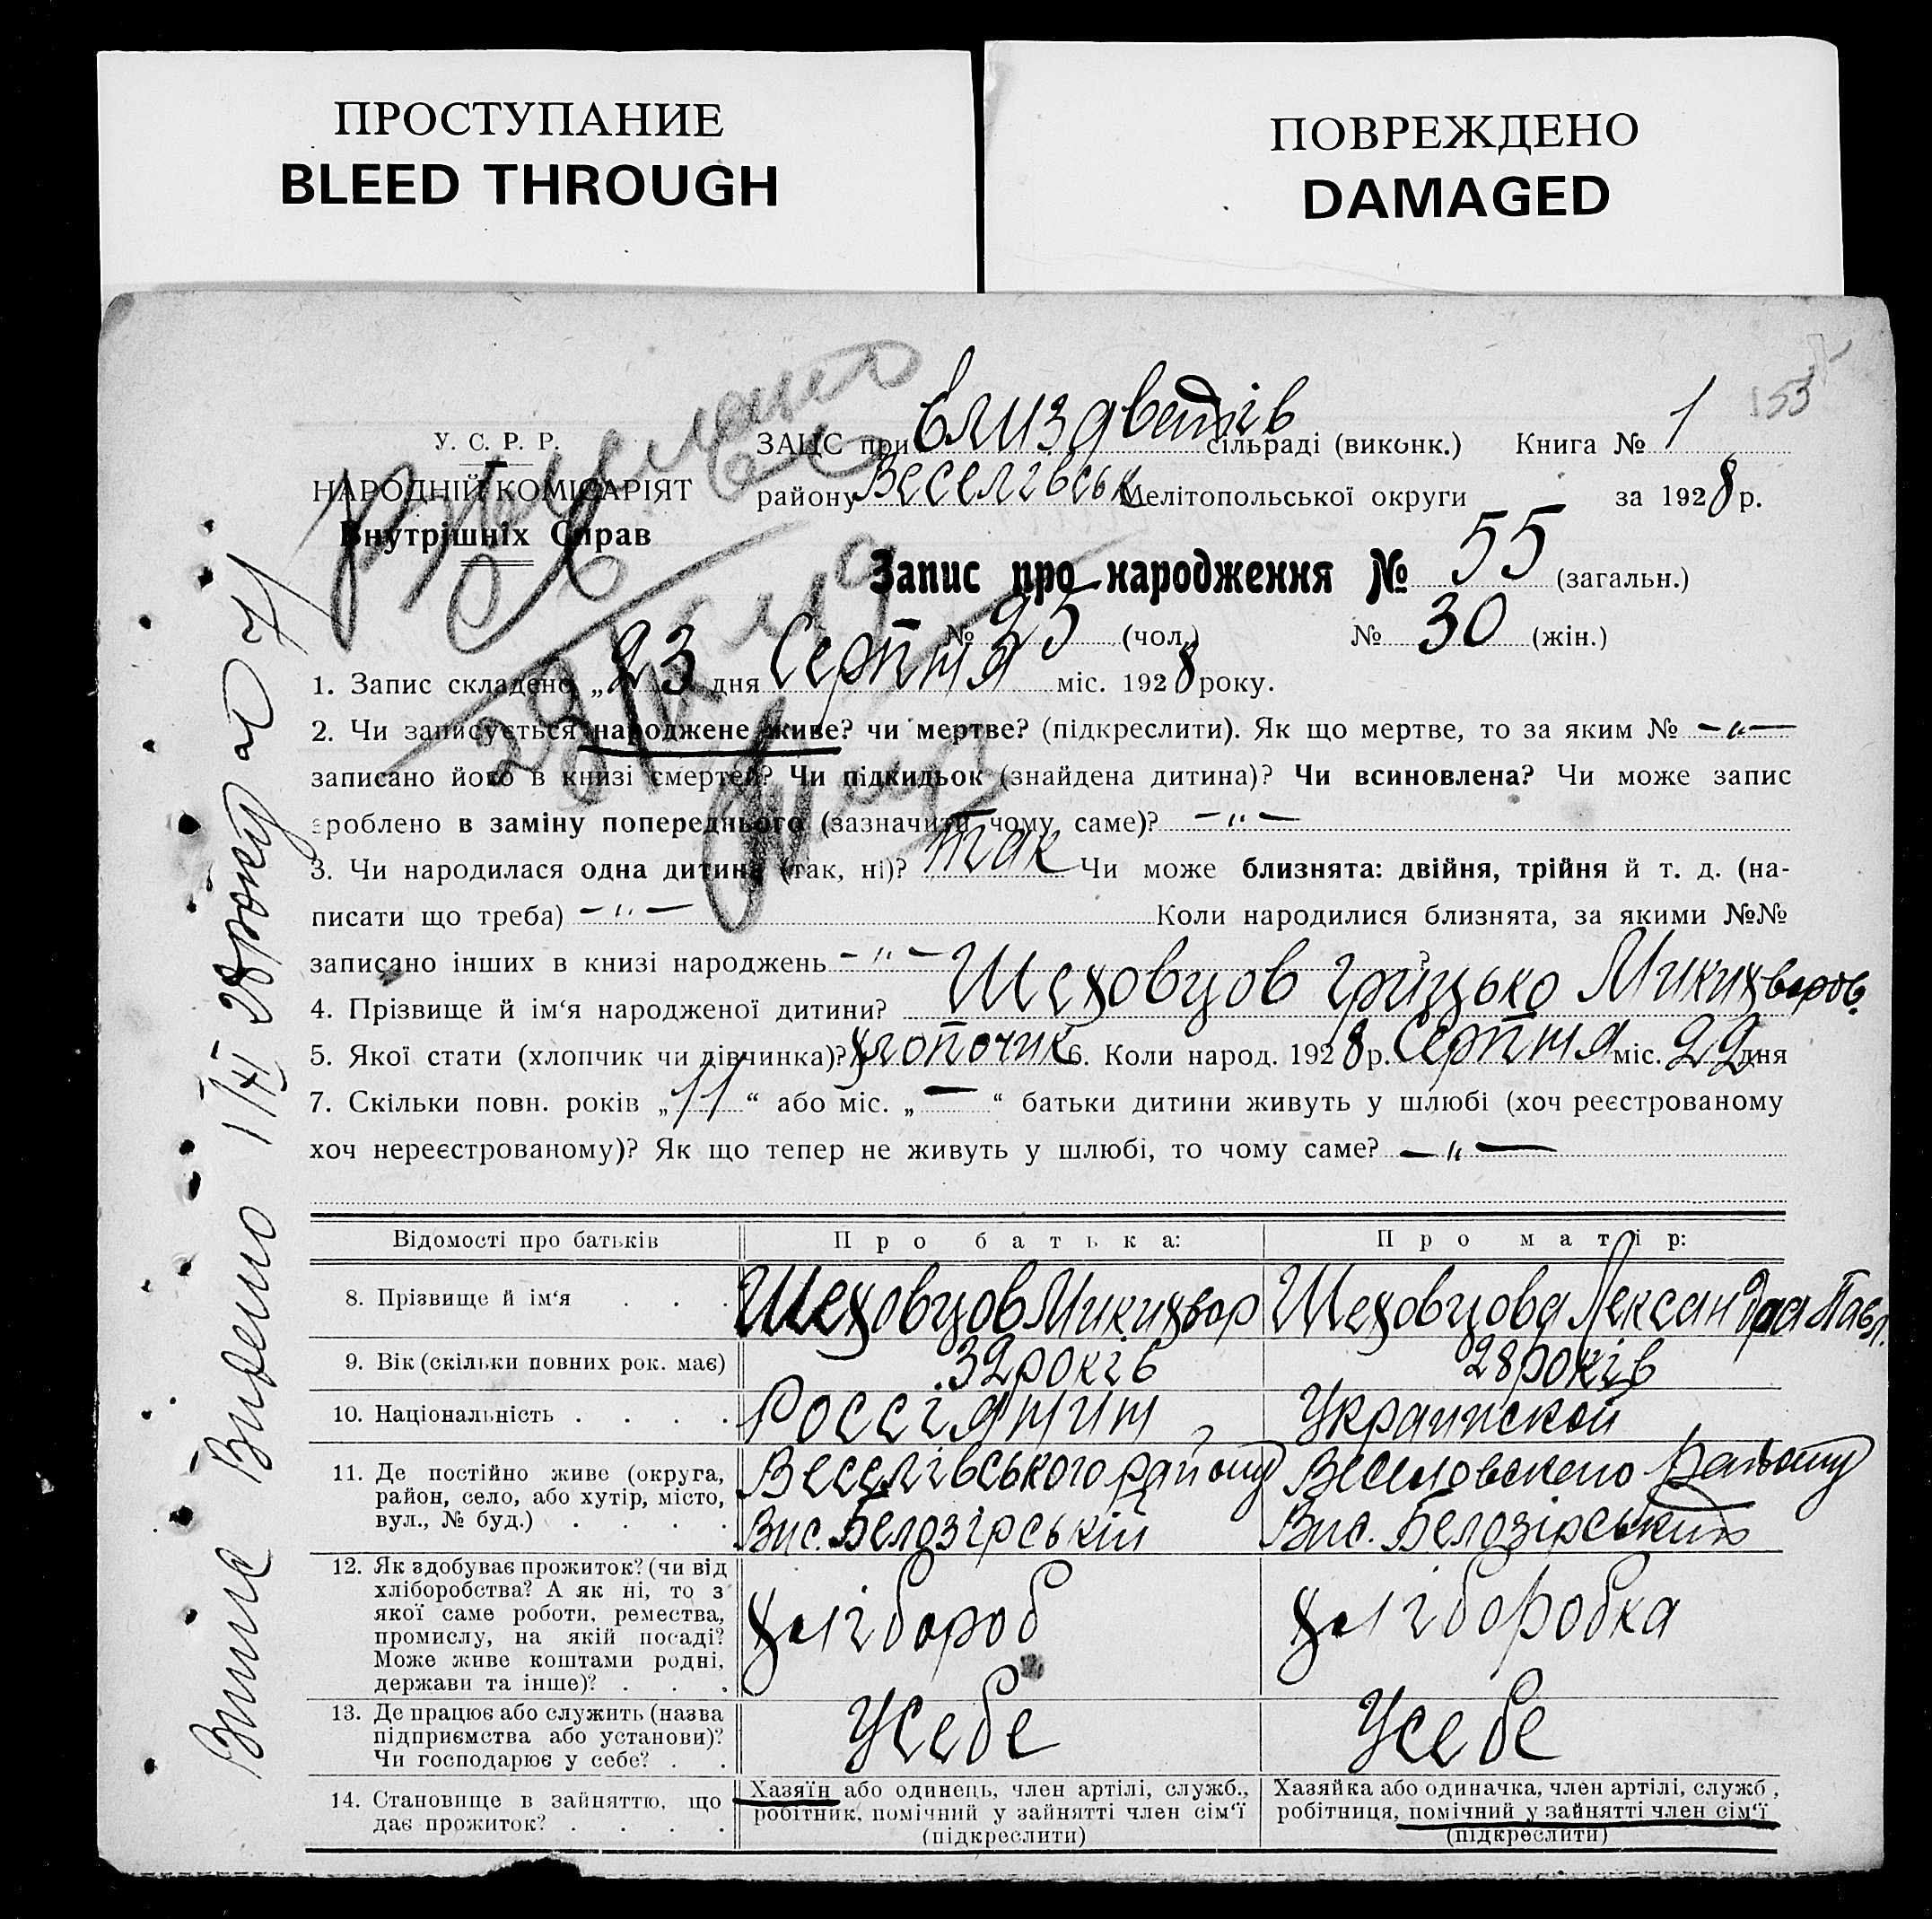 ПРОСТУПАНИЕ
BLEED THROUGH
ПОВРЕЖДЕНО
DAMAGED
153
У. С. Р. Р.
НАРОДНІЙ КОМІСАРІЯТ
Внутрішніх Справ
ЗАЦС при Єлизаветів сільраді (виконк.) Книга № 1
району Веселівськ Мелітопольської округи за 1928 р.
Запис про народження № 55 (загальн.)
№ 25 (чол.) № 30 (жін.)
1. Запис складено „23 дня Серпня міс. 1928 року.
2. Чи записується народжене живе? чи мертве? (підкреслити). Як що мертве, то за яким № —„—
записано його в книзі смертей? Чи підкидьок (знайдена дитина)? Чи всиновлена? Чи може запис
зроблено в заміну попереднього (зазначити чому саме)? —„—
3. Чи народилася одна дитина (так, ні)? так Чи може близнята: двійня, трійня й т. д. (на-
писати що треба) —„— Коли народилися близнята, за якими №№
записано інших в книзі народжень —„—
4. Прізвище й ім‘я народженої дитини? Шеховцов Грицько Микихваров.
5. Якої стати (хлопчик чи дівчинка)? хлопочик 6. Коли народ. 1928 р. Серпня міс. 22 дня
7. Скільки повн. років „11“ або міс. „—“ батьки дитини живуть у шлюбі (хоч реєстрованому
хоч нереєстрованому)? Як що тепер не живуть у шлюбі, то чому саме? —„—
Відомості про батьків Про батька: Про матір:
8. Прізвище й ім‘я . . . Шеховцов Микихвор Шеховцова Лександра Павл.
9. Вік (скільки повних рок. має) 32 років 28 років
10. Національність . . . . Россіянин Украинской
11. Де постійно живе (округа,
район, село, або хутір, місто,
вул., № буд.) . . . .
Веселівського району
Вис. Белозірській
Веселовского району
Вис. Белозірський
12. Як здобуває прожиток? (чи від
хліборобства? А як ні, то з
якої саме роботи, ремества,
промислу, на якій посаді?
Може живе коштами родні,
держави та інше)? . . .
хлібороб
хліборобка
13. Де працює або служить (назва
підприємства або установи)?
Чи господарює у себе? . .
Усебе
Усебе
14. Становище в зайняттю, що
дає прожиток? . . . .
Хазяїн або одинець, член артілі, служб.,
робітник, помічний у зайнятті член сім‘ї
(підкреслити)
Хазяйка або одиначка, член артілі, служб,
робітниця, помічний у зайнятті член сім‘ї
(підкреслити)